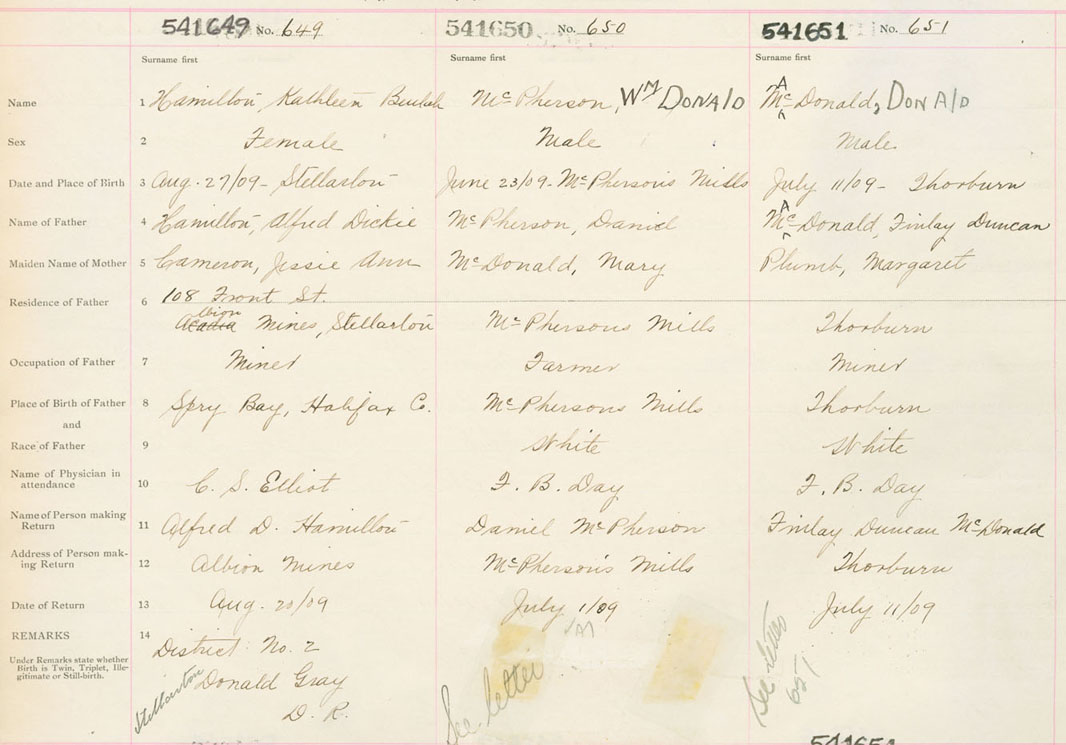 541649 No. 649 541650 No. 650 541651 No. 651
Surname first Surname first Surname first
Name 1 Hamilton, Kathleen Beulah McPherson, Wᴹ DONALD MᴬcDonald, DONALD
Sex 2 Female Male Male
Date and Place of Birth 3 Aug. 27/09 - Stellarton June 23/09 - McPhersons Mills July 11/09 - Thorburn
Name of Father 4 Hamilton, Alfred Dickie McPherson, Daniel MᴬcDonald, Finlay Duncan
Maiden Name of Mother 5 Cameron, Jessie Ann McDonald, Mary Plumb, Margaret
Residence of Father 6 108 Front St.
Albion Mines, Stellarton McPhersons Mills Thorburn
Occupation of Father 7 Miner Farmer Miner
Place of Birth of Father 8 Spry Bay, Halifax Co. McPhersons Mills Thorburn
and
Race of Father 9 White White
Name of Physician in
attendance 10 C. S. Elliot F. B. Day F. B. Day
Name of Person making
Return 11 Alfred D. Hamilton Daniel McPherson Finlay Duncan McDonald
Address of Person mak-
ing Return 12 Albion Mines McPherson's Mills Thorburn
Date of Return 13 Aug. 20/09 July 1/09 July 11/09
REMARKS 14 District No. 2
Under Remarks state whether
Birth is Twin, Triplet, Ille-
gitimate or Still-birth.
Stellarton Donald Gray
D. R.
See letter
See letters
651